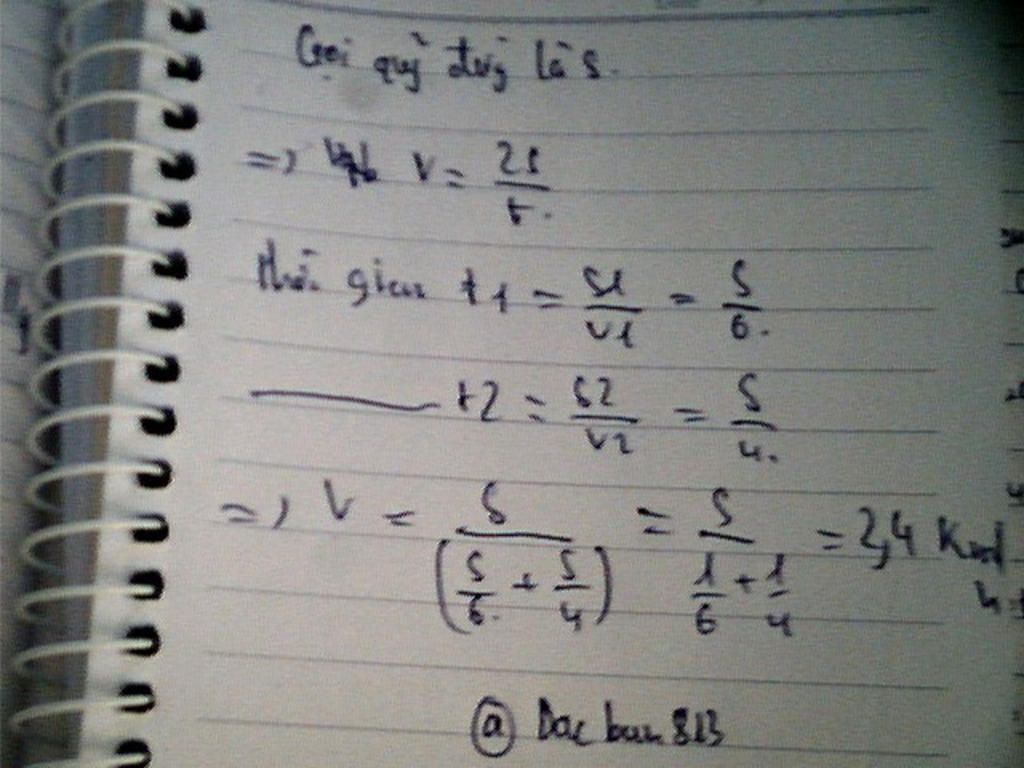 Gọi quỹ đường là s.
=> V = 2s/t.
thời gian t1 = s1/v1 = s/6.
—— t2 = s2/v2 = s/4.
=> V = s/(s/6. + s/4) = s/(1/6 + 1/4) = 2,4 Km/h